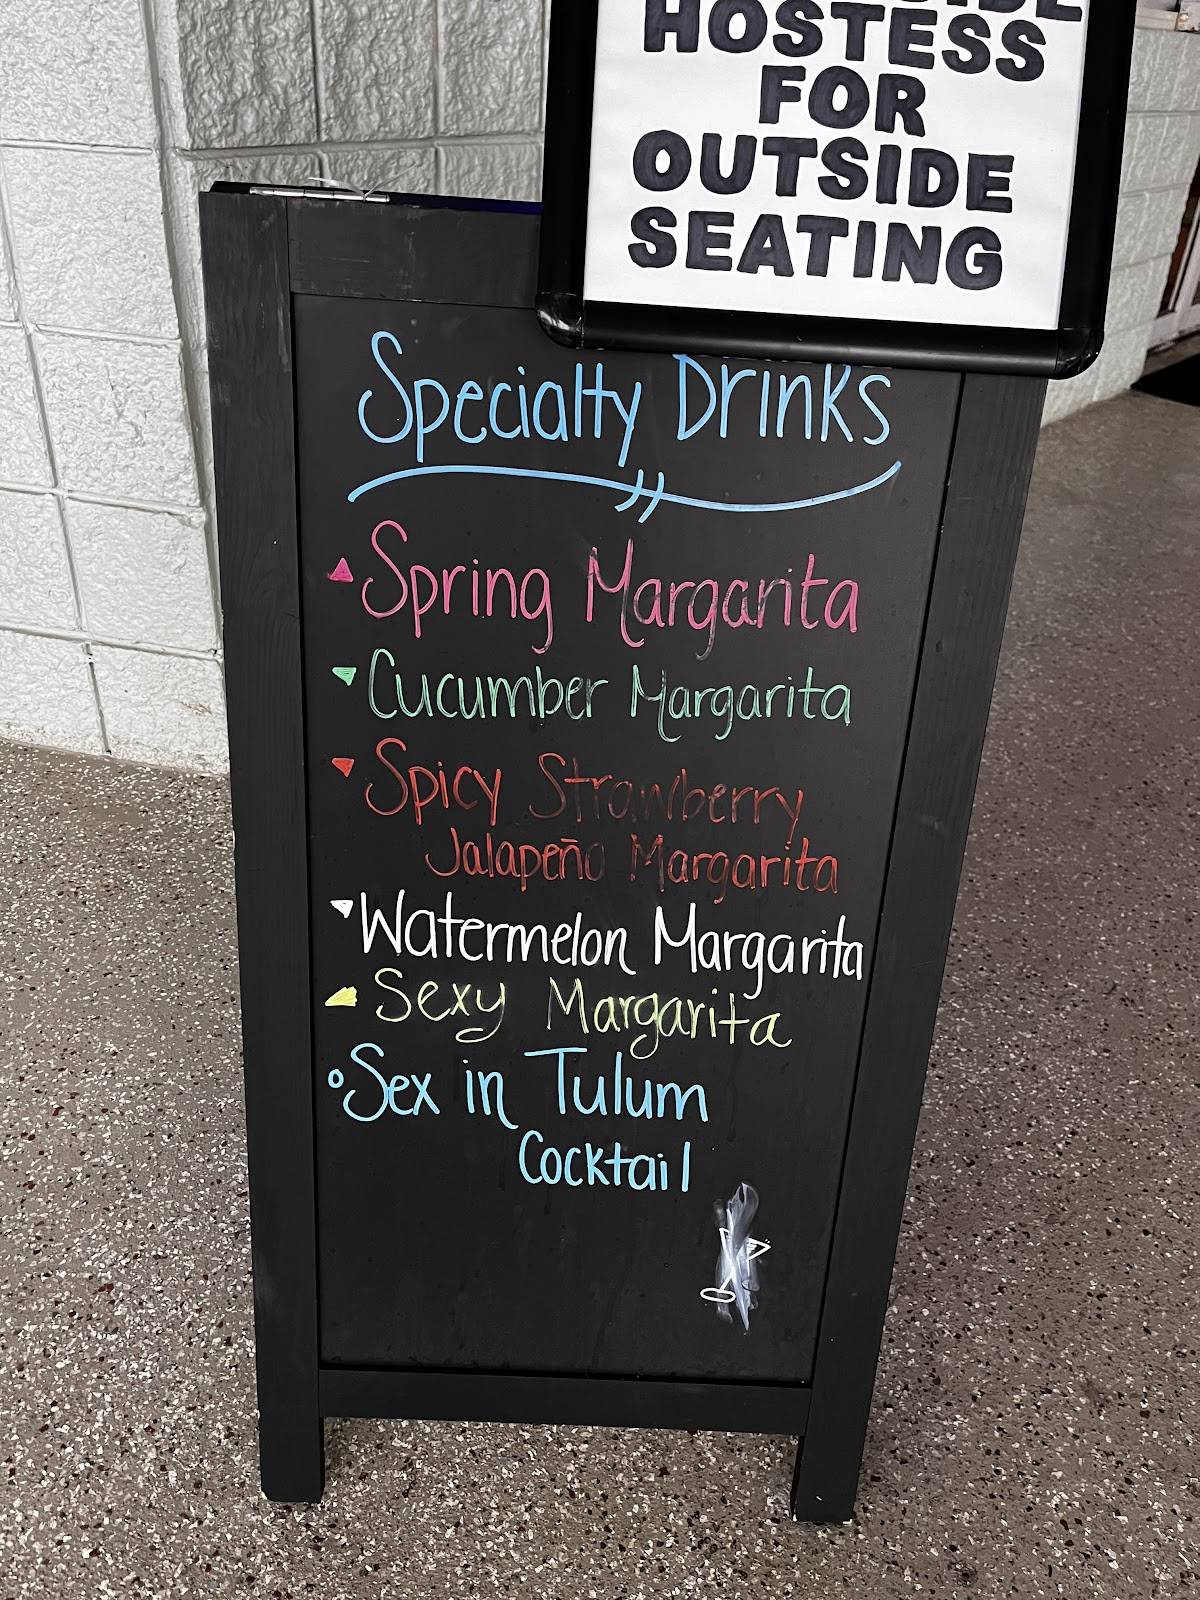 HOSTESS
FOR
OUTSIDE
SEATING
Specialty Drinks
Spring Margarita
Cucumber Margarita
Spicy Strawberry
Jalapeño Margarita
Watermelon Margarita
Sexy Margarita
Sex in Tulum
Cocktail